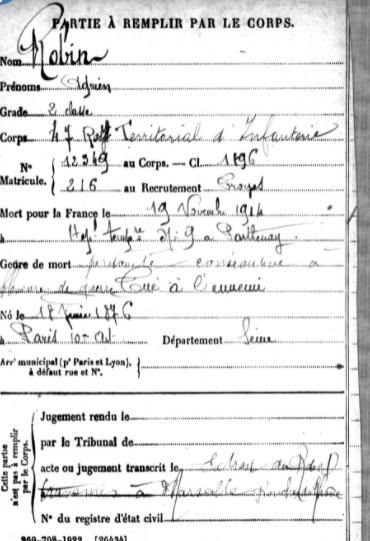 PARTIE À REMPLIR PAR LE CORPS.
Nom Robin
Prénoms Adrien
Grade 2 classe
Corps 47 Rgt Territorial d'Infanterie
N° Matricule. 12349 au Corps. — Cl. 1896
216 au Recrutement Troyes
Mort pour la France le 19 Novembre 1914
à Hop temp n° 9 à Parthenay
Genre de mort consécutive à
blessure de guerre Tué à l'ennemi
Né le 18 juin 1876
à Paris 10e Ar Département Seine
Arrt municipal (pr Paris et Lyon),
à défaut rue et N°.
Cette partie n'est pas à remplir par le Corps.
Jugement rendu le
par le Tribunal de
acte ou jugement transcrit le
à Marseille
N° du registre d'état civil